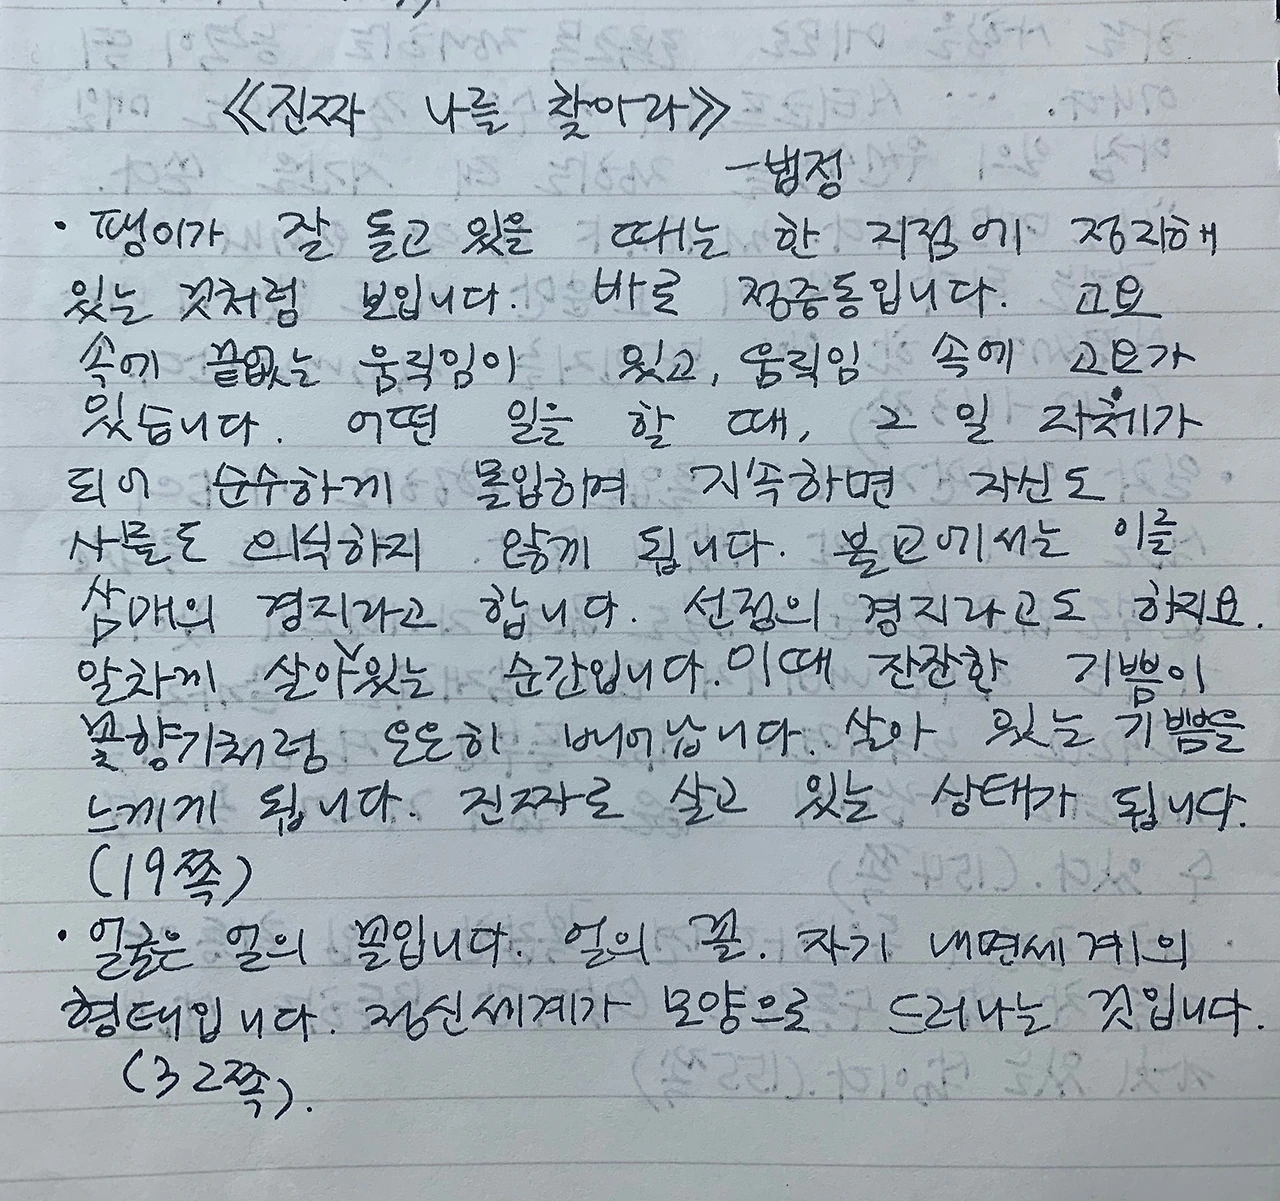 《진짜 나를 찾아라》
-법정
· 팽이가 잘 돌고 있을 때는 한 지점에 정지해
있는 것처럼 보입니다. 바로 정중동입니다. 고요
속에 끝없는 움직임이 있고, 움직임 속에 고요가
있습니다. 어떤 일을 할 때, 그 일 자체가
되어 순수하게 몰입하며 지속하면 자신도
사물도 의식하지 않게 됩니다. 불교에서는 이를
삼매의 경지라고 합니다. 선정의 경지라고도 하지요.
알차게 살아있는 순간입니다. 이때 잔잔한 기쁨이
꽃향기처럼 은은히 배어납니다. 살아 있는 기쁨을
느끼게 됩니다. 진짜로 살고 있는 상태가 됩니다.
(19쪽)
· 얼굴은 얼의 꼴입니다. 얼의 꼴. 자기 내면세계의
형태입니다. 정신세계가 모양으로 드러나는 것입니다.
(32쪽).